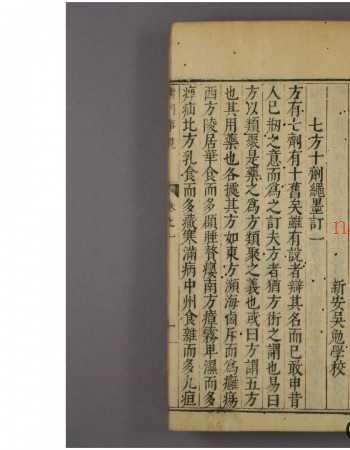 新安吳勉學校
七方十劑繩墨訂一
方有七劑有十舊矣雖有說者辯其名而已敢申昔
人已剏之意而爲之訂夫方者猶方術之謂也易曰
方以類聚是藥之爲方類聚之義也或曰方謂五方
也其用藥也各據其方如東方瀕海鹵斥而爲癰瘍
西方陵居華食而多頷腫贅癭南方瘴霧卑濕而多
痹疝北方乳食而多藏寒滿病中州食雜而多九疸
門事親 卷之一
n